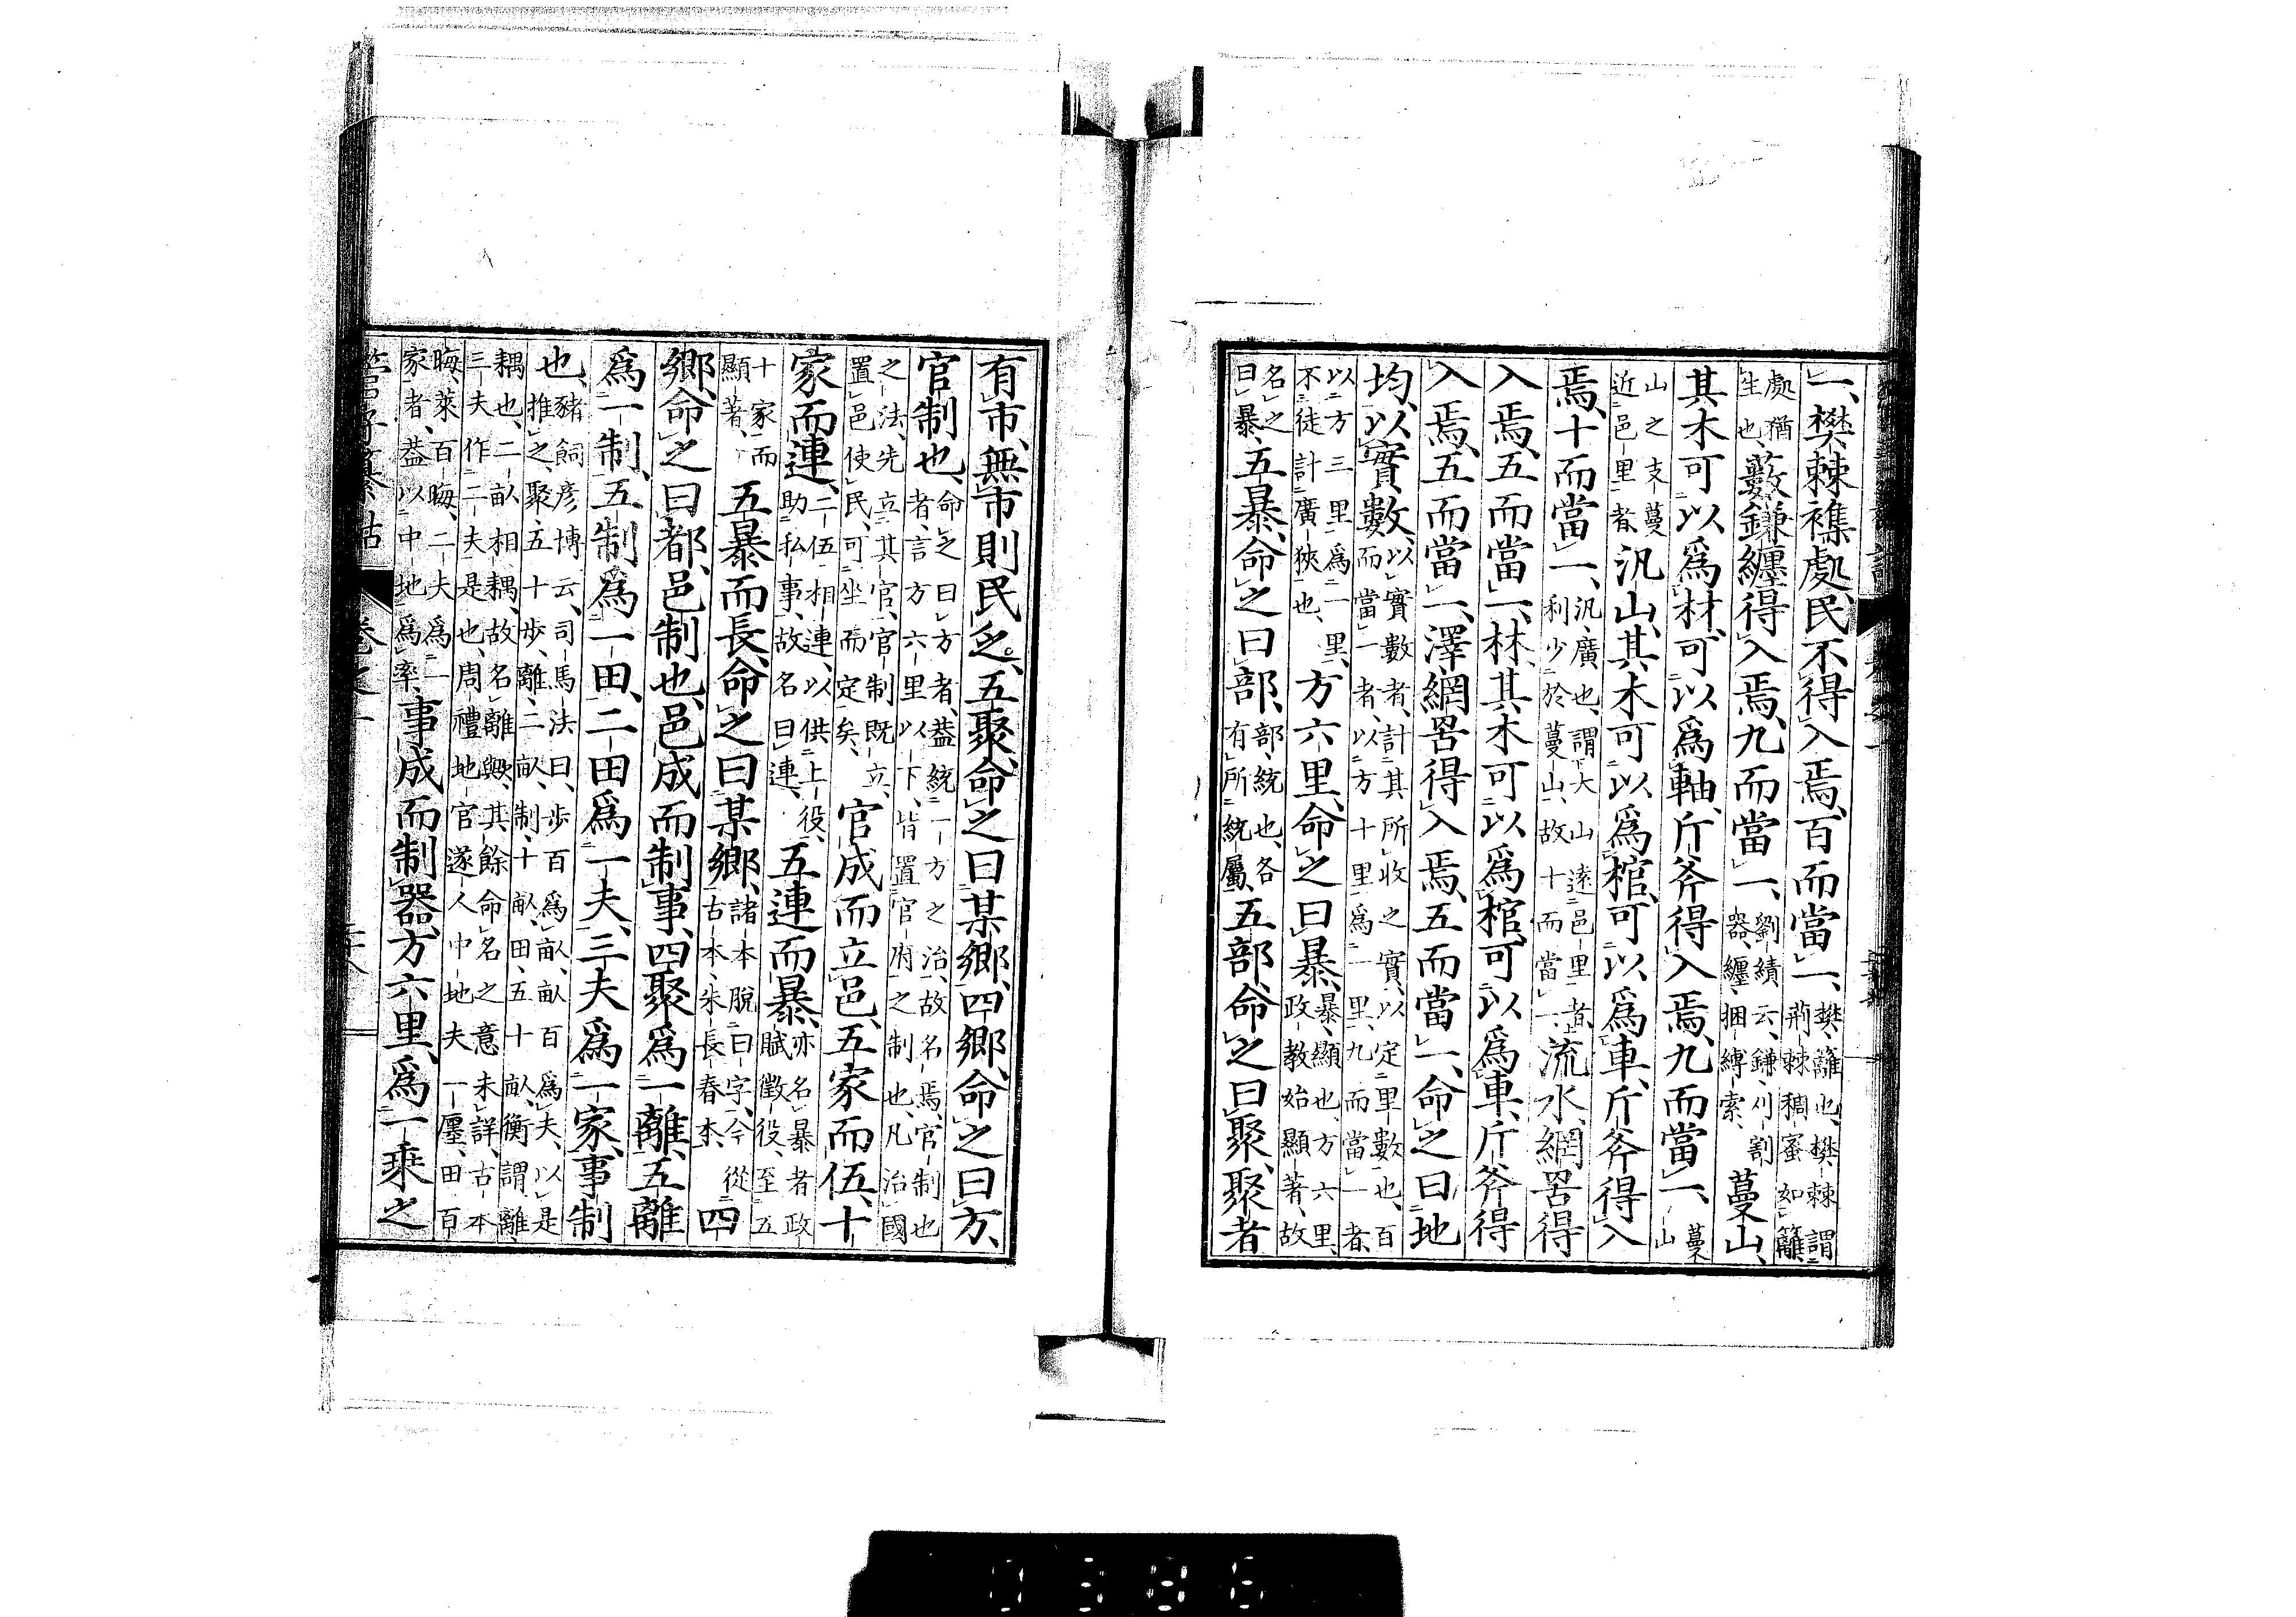 一、樊棘襍處、民不得入焉、百而當一、樊、籬也、樊棘謂荊棘稠蜜如籬
處猶生也、藪鎌纏得入焉、九而當一、劉績云、鎌、刈割器、纏、捆縛索、蔓山、
其木可以爲材、可以爲軸、斤斧得入焉、九而當一、蔓山
山之支蔓近邑里者、汎山、其木可以爲棺、可以爲車、斤斧得入
焉、十而當一、汎、廣也、謂大山遠邑里者、利少於蔓山、故十而當一、流水網罟得
入焉、五而當一、林、其木可以爲棺、可以爲車、斤斧得
入焉、五而當一、澤網罟得入焉、五而當一、命之曰地
均、以實數、以實數者、計其所收之實、以定里數也、百而當一者、以方十里爲一里、九而當一者、
以方三里爲一里、不徒計廣狹也、方六里、命之曰暴、暴、顯也、方六里、政教始顯著、故
名之曰暴、五暴、命之曰部、部、統也、各有所統屬、五部、命之曰聚、聚者
有市、無市則民乏、五聚、命之曰某鄉、四鄉、命之曰方、
官制也、命之曰方者、蓋統一方之治、故名焉、官制也者、言方六里以下、皆置官府之制也、凡治國
之法、先立其官、官制既立、置邑使民、可坐而定矣、官成而立邑、五家而伍、十
家而連、二伍相連、以供上役、助私事、故名曰連、五連而暴、亦名暴者政賦徵役、至五
十家而顯著、五暴而長、命之曰某鄉、諸本脫曰字、今從古本、朱長春本、四
鄉、命之曰都、邑制也、邑成而制事、四聚爲一離、五離
爲一制、五制爲一田、二田爲一夫、三夫爲一家、事制
也、豬飼彦博云、司馬法曰、步百爲畝、畝百爲夫、以是推之、聚、五十步、離、二畝、制、十畝、田、五十畝、衡謂離
耦也、二畝相耦、故名離與、其餘命名之意未詳、古本三夫作二夫、是也、周禮地官遂人中地夫一廛、田百
晦、萊百晦、二夫爲一家者、蓋以中地爲率、事成而制器、方六里、爲一乘之